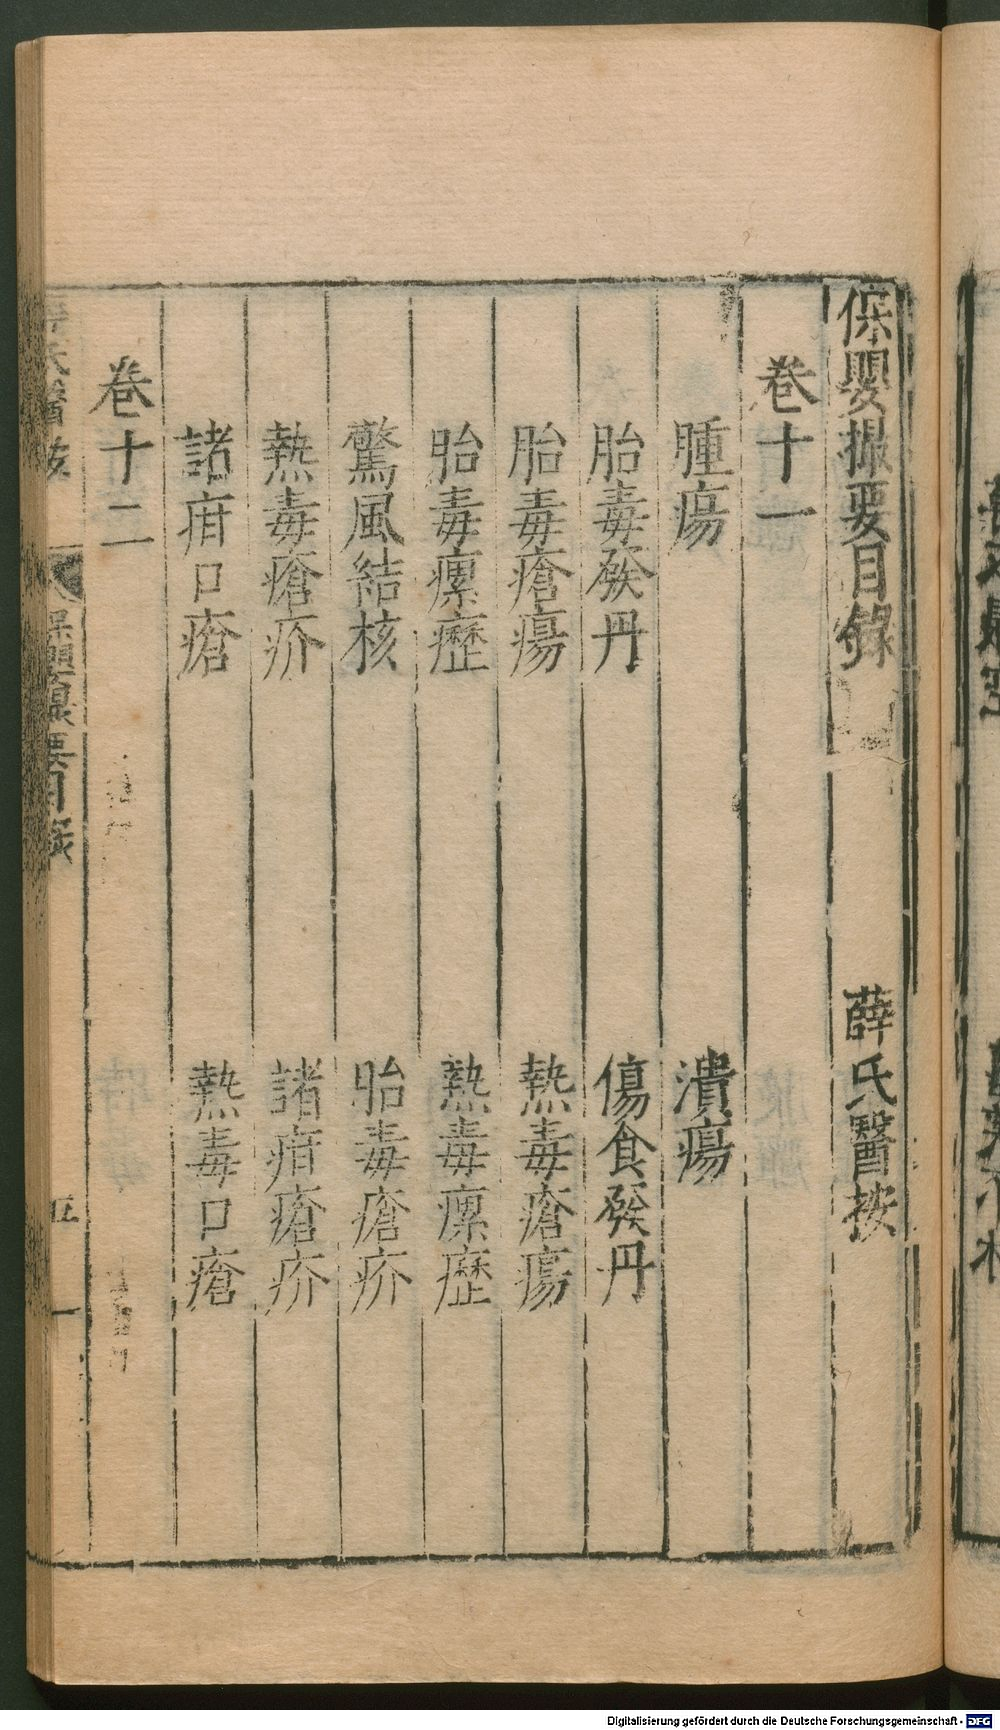 保嬰撮要目錄　薛氏醫按
卷十一
腫瘍　潰瘍
胎毒發丹　傷食發丹
胎毒瘡瘍　熱毒瘡瘍
胎毒瘰癧　熱毒瘰癧
驚風結核　胎毒瘡疥
熱毒瘡疥　諸疳瘡疥
諸疳口瘡　熱毒口瘡
卷十二
保嬰撮要目錄　五　一
Digitalisierung gefördert durch die Deutsche Forschungsgemeinschaft - DFG